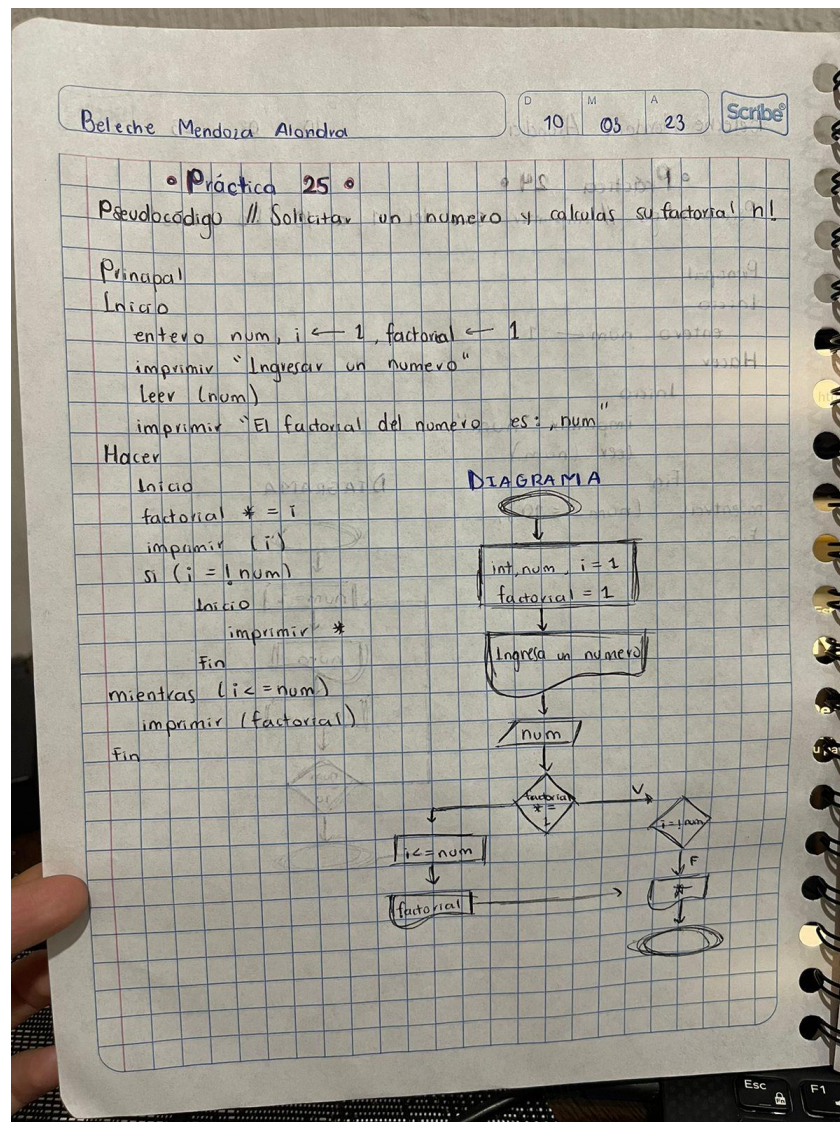 Beleche Mendoza Alondra
D 10 M 03 A 23
Scribe®
• Práctica 25 •
Pseudocódigo // Solicitar un numero y calculas su factorial n!
Principal
Inicio
entero num, i ← 1, factorial ← 1
imprimir "Ingresar un numero"
leer (num)
imprimir "El factorial del numero es:, num"
Hacer
Inicio
factorial * = i
imprimir (i)
si (i = ! num)
Inicio
imprimir *
Fin
mientras (i < = num)
imprimir (factorial)
Fin
DIAGRAMA
int, num, i = 1
factorial = 1
Ingresa un numero
num
factorial
* =
1
V
i = ! num
F
*
i < = num
factorial
Esc
Fn
F1